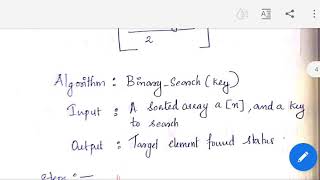 2
Algorithm : Binary_Search (key)
Input : A sorted array a [n], and a key
to search
Output : Target element found status.
Steps :—
4